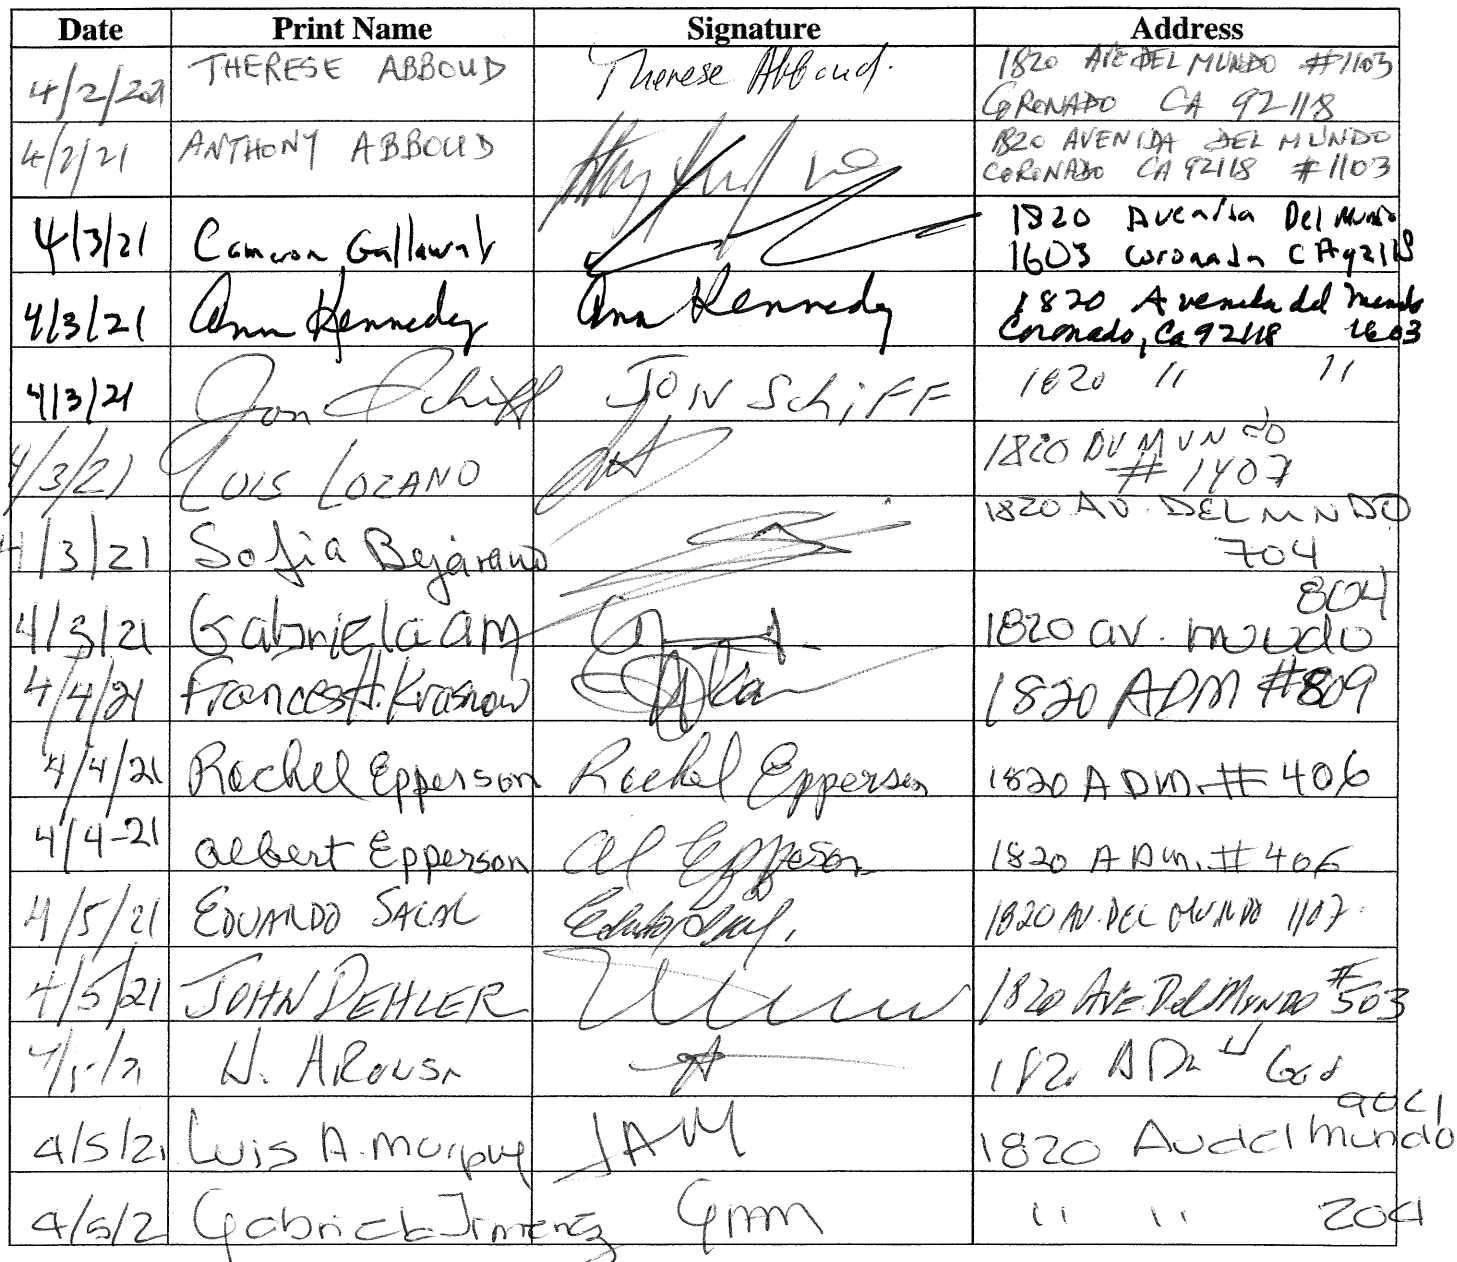 Date Print Name Signature Address
4/2/2021 THERESE ABBOUD Therese Abboud. 1820 AVE DEL MUNDO #1103
CORONADO CA 92118
4/2/21 ANTHONY ABBOUD 1820 AVENIDA DEL MUNDO
CORONADO CA 92118 #1103
4/3/21 Cameron Gallaway 1820 Avenida Del Mundo
1603 Coronado CA 92118
4/3/21 Ann Kennedy Ann Kennedy 1820 Avenida del Mundo
Coronado, Ca 92118 1603
4/3/21 Jon Schiff JON SCHiFF 1820 " "
4/3/21 LUIS LOZANO 1820 MUNDO
# 1407
4/3/21 Sofia Bejarano 1820 AV. DEL MNDO
704
804
4/3/21 Gabriela am 1820 av. mundo
4/4/21 Frances H. Krasnow 1820 ADM #809
4/4/21 Rachel Epperson Rachel Epperson 1820 ADM. # 406
4/4-21 albert Epperson al Epperson 1820 ADM. # 406
4/5/21 EDUARDO SACAL 1820 AV. DEL MUNDO 1107
4/5/21 JOHN DEHLER 1820 AVE. Del MUNDO #503
904
4/5/21 Luis A. Murphy JAM 1820 Av del mundo
4/5/2 Gabriela Jimenez Gmm " " 204